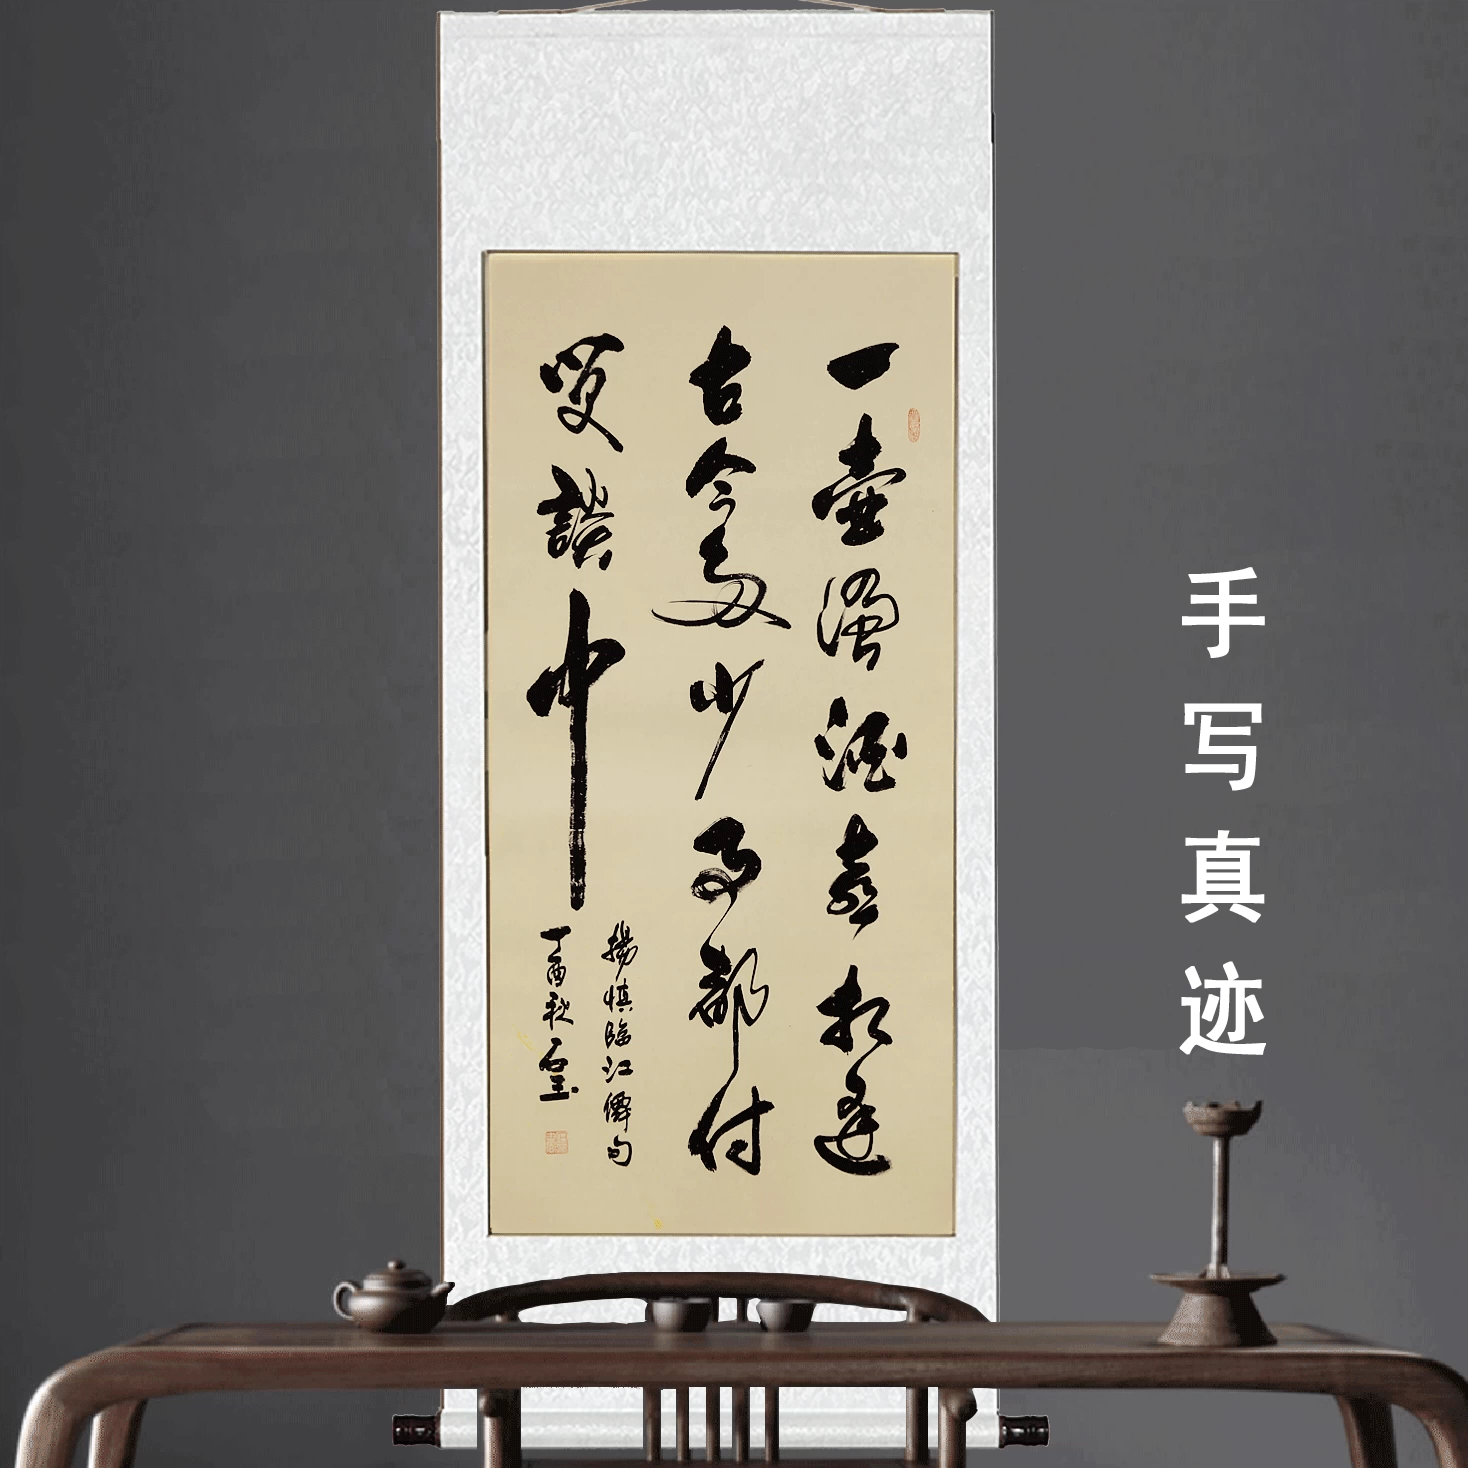 一壺濁酒喜相逢
古今多少事都付
笑談中
楊慎臨江僊句
丁酉秋
手写真迹